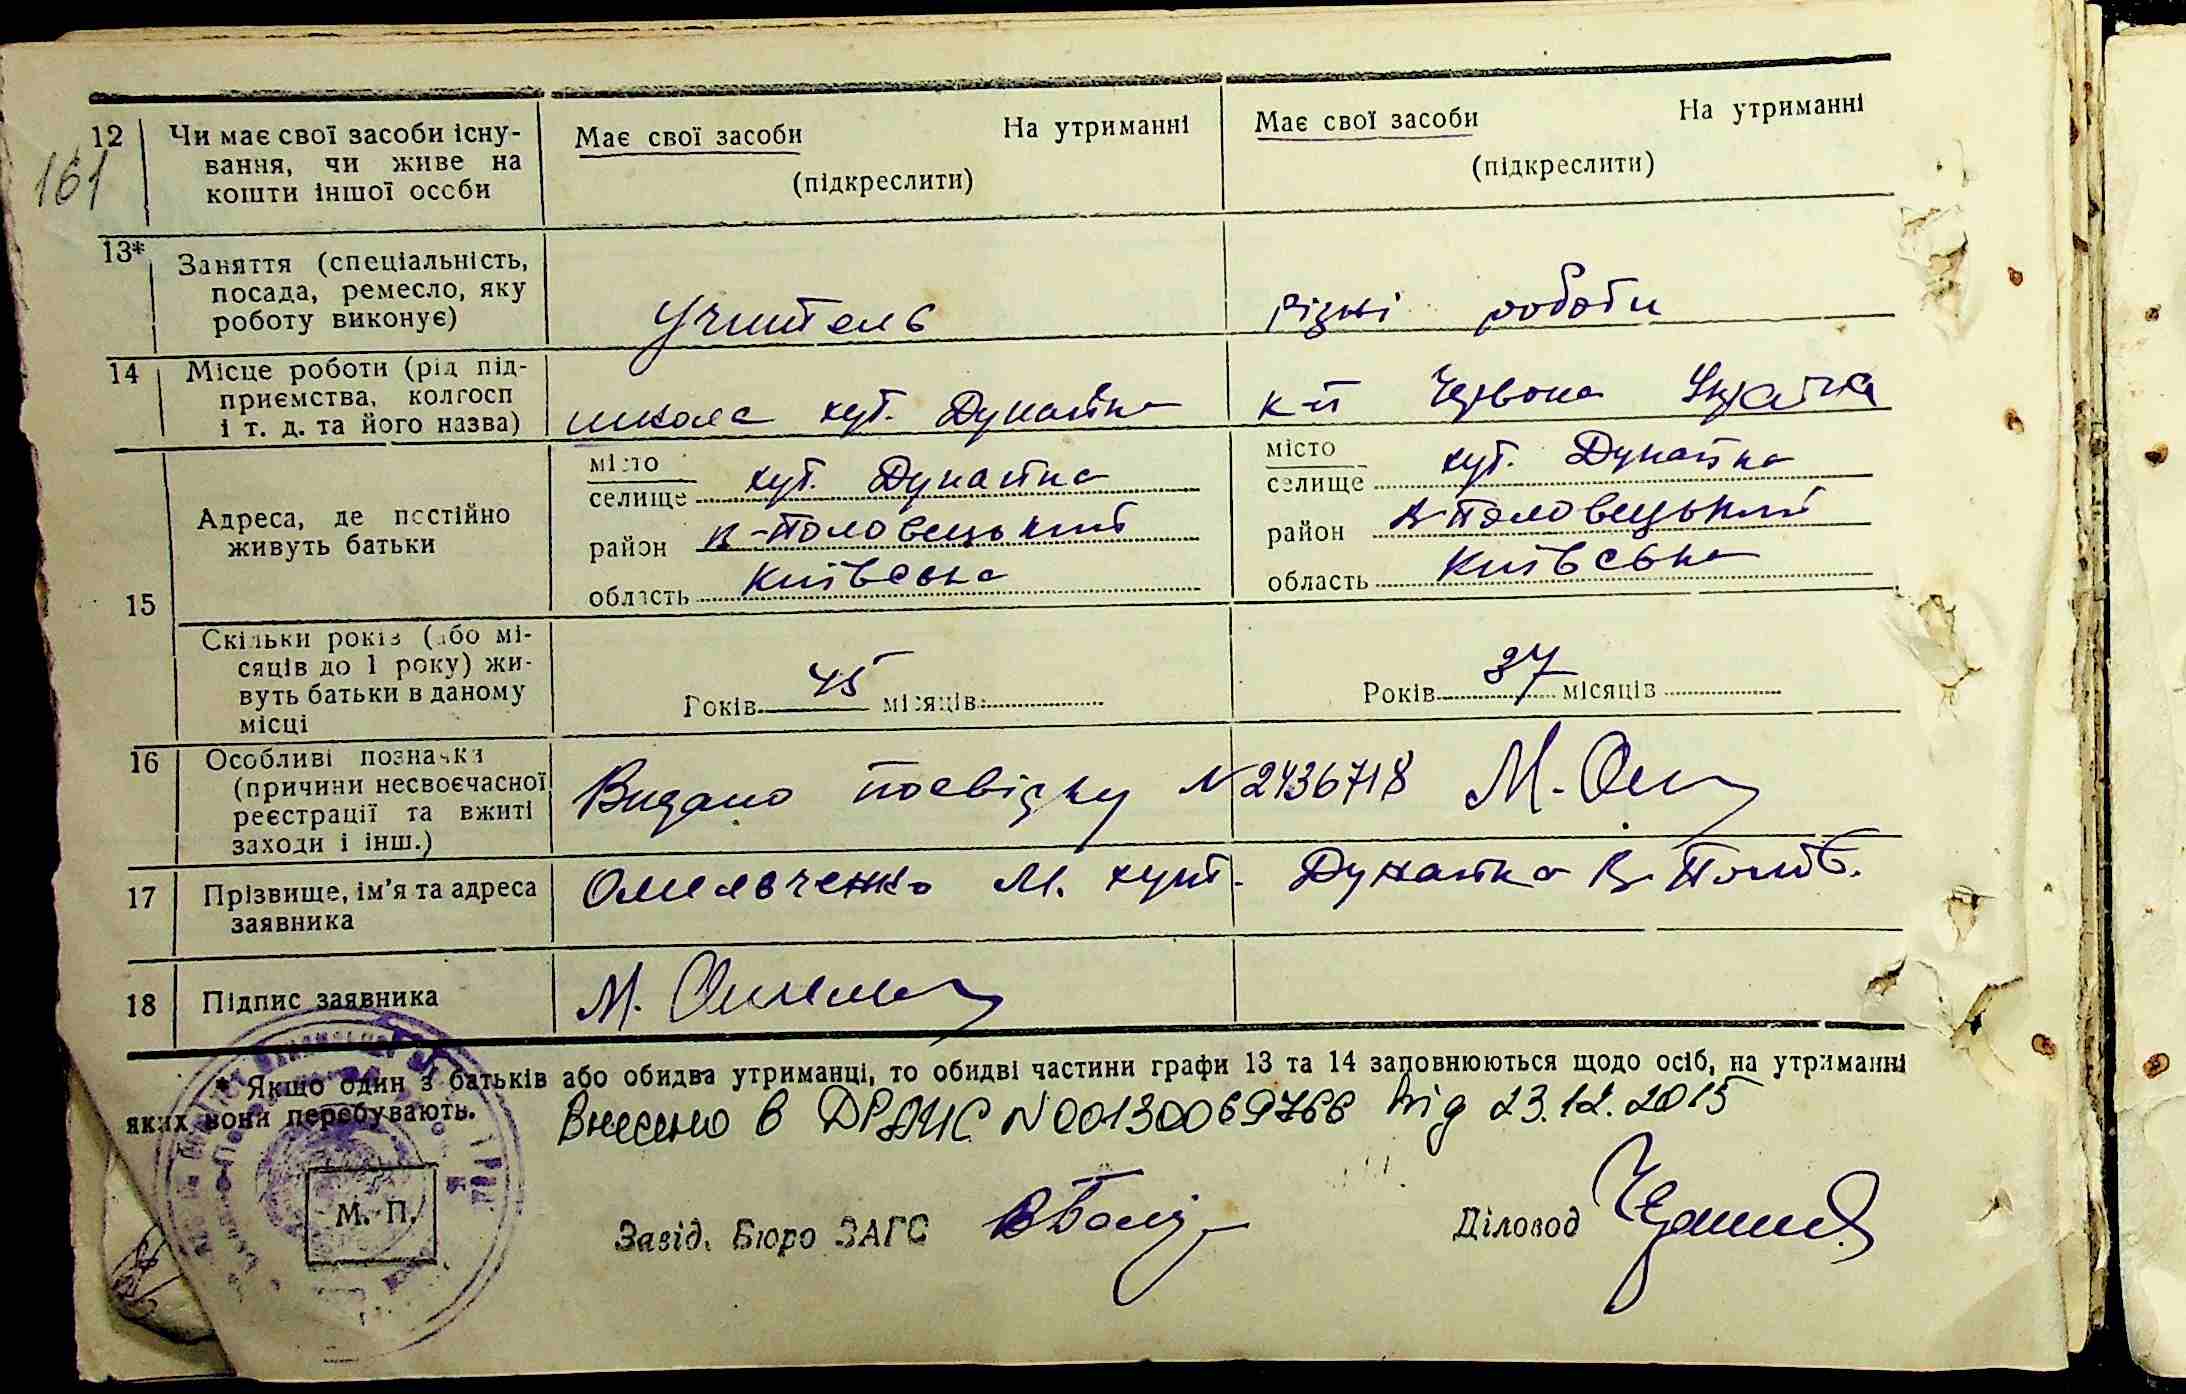 161
12 Чи має свої засоби існу-
вання, чи живе на
кошти іншої особи
Має свої засоби На утриманні
(підкреслити)
Має свої засоби На утриманні
(підкреслити)
13* Заняття (спеціальність,
посада, ремесло, яку
роботу виконує)
Учитель
різні роботи
14 Місце роботи (рід під-
приємства, колгосп
і т. д. та його назва)
школа хут. Дунайка
к-п Червона Українка
15 Адреса, де постійно
живуть батьки
місто
селище хут. Дунайка
район В-Половецький
область Київська
місто
селище хут. Дунайка
район В-Половецький
область Київська
Скільки років (або мі-
сяців до 1 року) жи-
вуть батьки в даному
місці
Років 45 місяців
Років 37 місяців
16 Особливі позначки
(причини несвоєчасної
реєстрації та вжиті
заходи і інш.)
Видано посвідку N 2436718 М.
17 Прізвище, ім'я та адреса
заявника
Омельченко М. хут. Дунайка В. Полов.
18 Підпис заявника
М.
* Якщо один з батьків або обидва утриманці, то обидві частини графи 13 та 14 заповнюються щодо осіб, на утриманні
яких вони перебувають.
Внесено в ДРАЦС N 00130069766 від 23.12.2015
М. П.
Завід. Бюро ЗАГС
Діловод